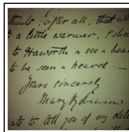 after all, that w
t a little warmer, I sho
to Haworth & see a hear
to be seen a heard —
Yours sincerely
Mary
to tell you of my